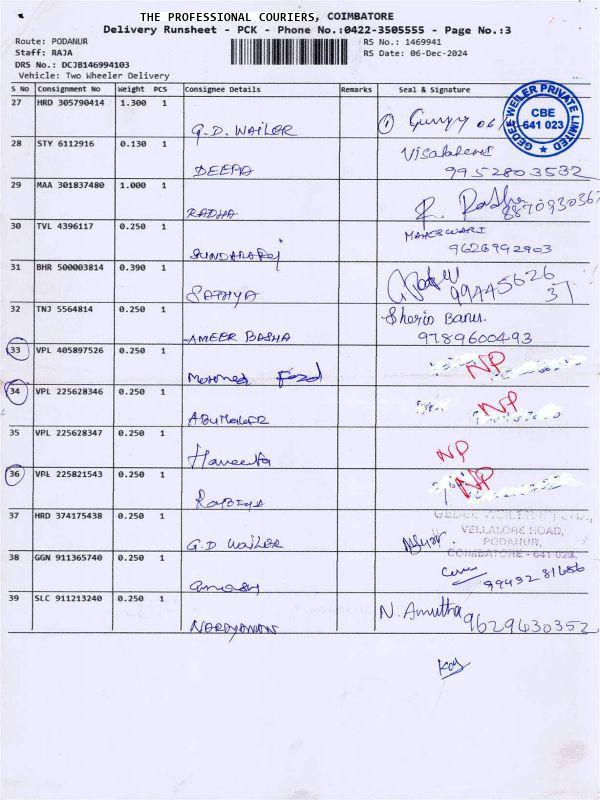 THE PROFESSIONAL COURIERS, COIMBATORE
Delivery Runsheet - PCK - Phone No.:0422-3505555 - Page No.:3
Route: PODANUR
RS No.: 1469941
Staff: RAJA
RS Date: 06-Dec-2024
DRS No.: DCJB146994103
Vehicle: Two Wheeler Delivery
S No Consignment No Weight PCS Consignee Details Remarks Seal & Signature
27 HRD 305790414 1.300 1 G.D. WAILER
GEDEE WEILER PRIVATE LIMITED
CBE
641 023
28 STY 6112916 0.130 1 DEEPA 9952803532
29 MAA 301837480 1.000 1 RADHA R. Radha
30 TVL 4396117 0.250 1 SUNDARARaj MAHESWARI
9626992903
31 BHR 500003814 0.390 1 SATHYA 9944562637
32 TNJ 5564814 0.250 1 AMEER BASHA
9789600493
33 VPL 405897526 0.250 1 NP
34 VPL 225628346 0.250 1 NP
35 VPL 225628347 0.250 1 NP
36 VPL 225821543 0.250 1 NP
37 HRD 374175438 0.250 1 G.D WAILER
VELLALORE ROAD,
PODANUR,
COIMBATORE - 641 023.
38 GGN 911365740 0.250 1
39 SLC 911213240 0.250 1 NARAYANAN N. Amutha 9629430352